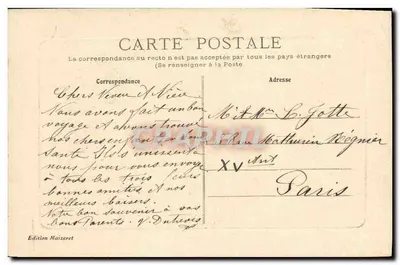 CARTE POSTALE
La correspondance au recto n'est pas acceptée par tous les pays étrangers
(Se renseigner à la Poste
Correspondance
Adresse
Chers Neveu et Nièce
Nous avons fait un bon
voyage et avons trouvé
nos chers enfants en bonne
Santé Ils s'unissent a
nous pour vous envoyer
à tous les trois leurs
bonnes amitiés et nos
meilleurs baisers.
Notre bon souvenir à vos
bons Parents. V. Dubois
M. et Mme L. Gotte
Rue Mathurin Régnier
XV Arrt
Paris
Edition Maizeret